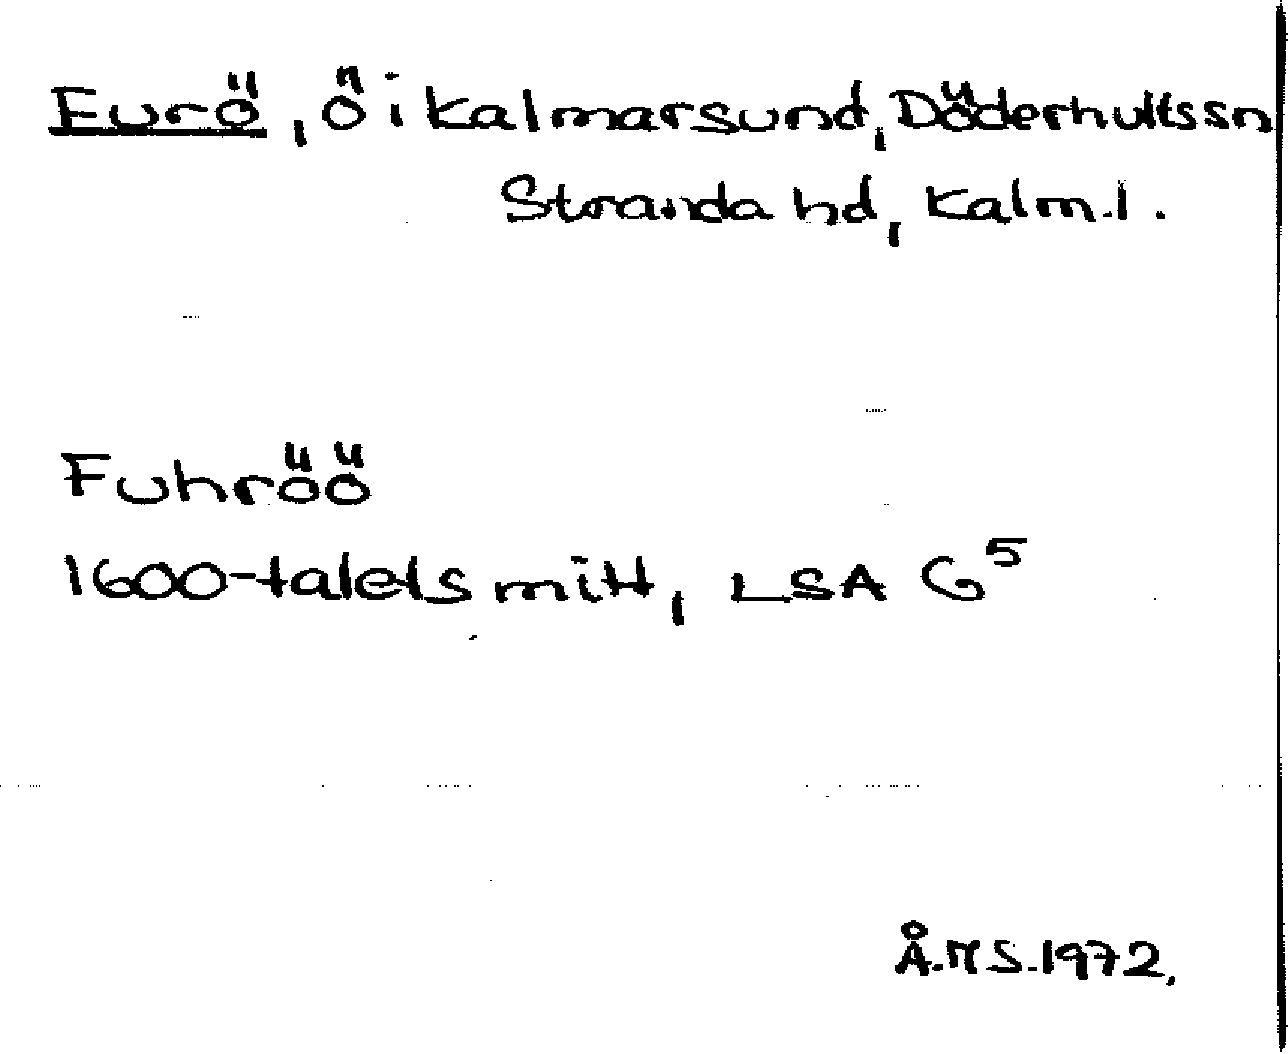 Furö, ö i Kalmarsund, Döderhultssn
Stranda hd, Kalm.l.
Fuhröö
1600-talets mitt, LSA G5
Å.M S.1972.